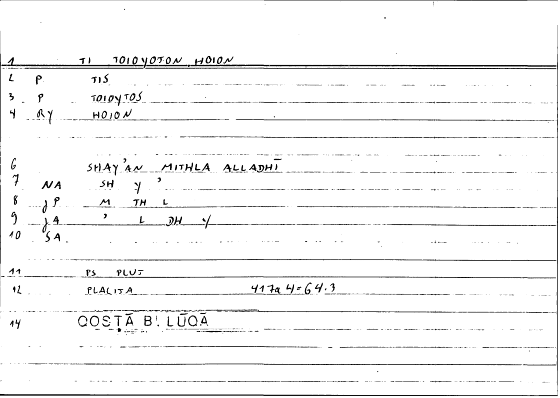 1 TI TOIOYOTON HOION
2 P TIS
3 P TOIOYTOS
4 RY HOION
6 SHAY'AN MITHLA ALLADHĪ
7 NA SH Y '
8 JP M TH L
9 JA ' L DH Y
10 SA
11 PS PLUT
12 PLALITA 417a4=64.3
14 QOSṬĀ B. LŪQĀ